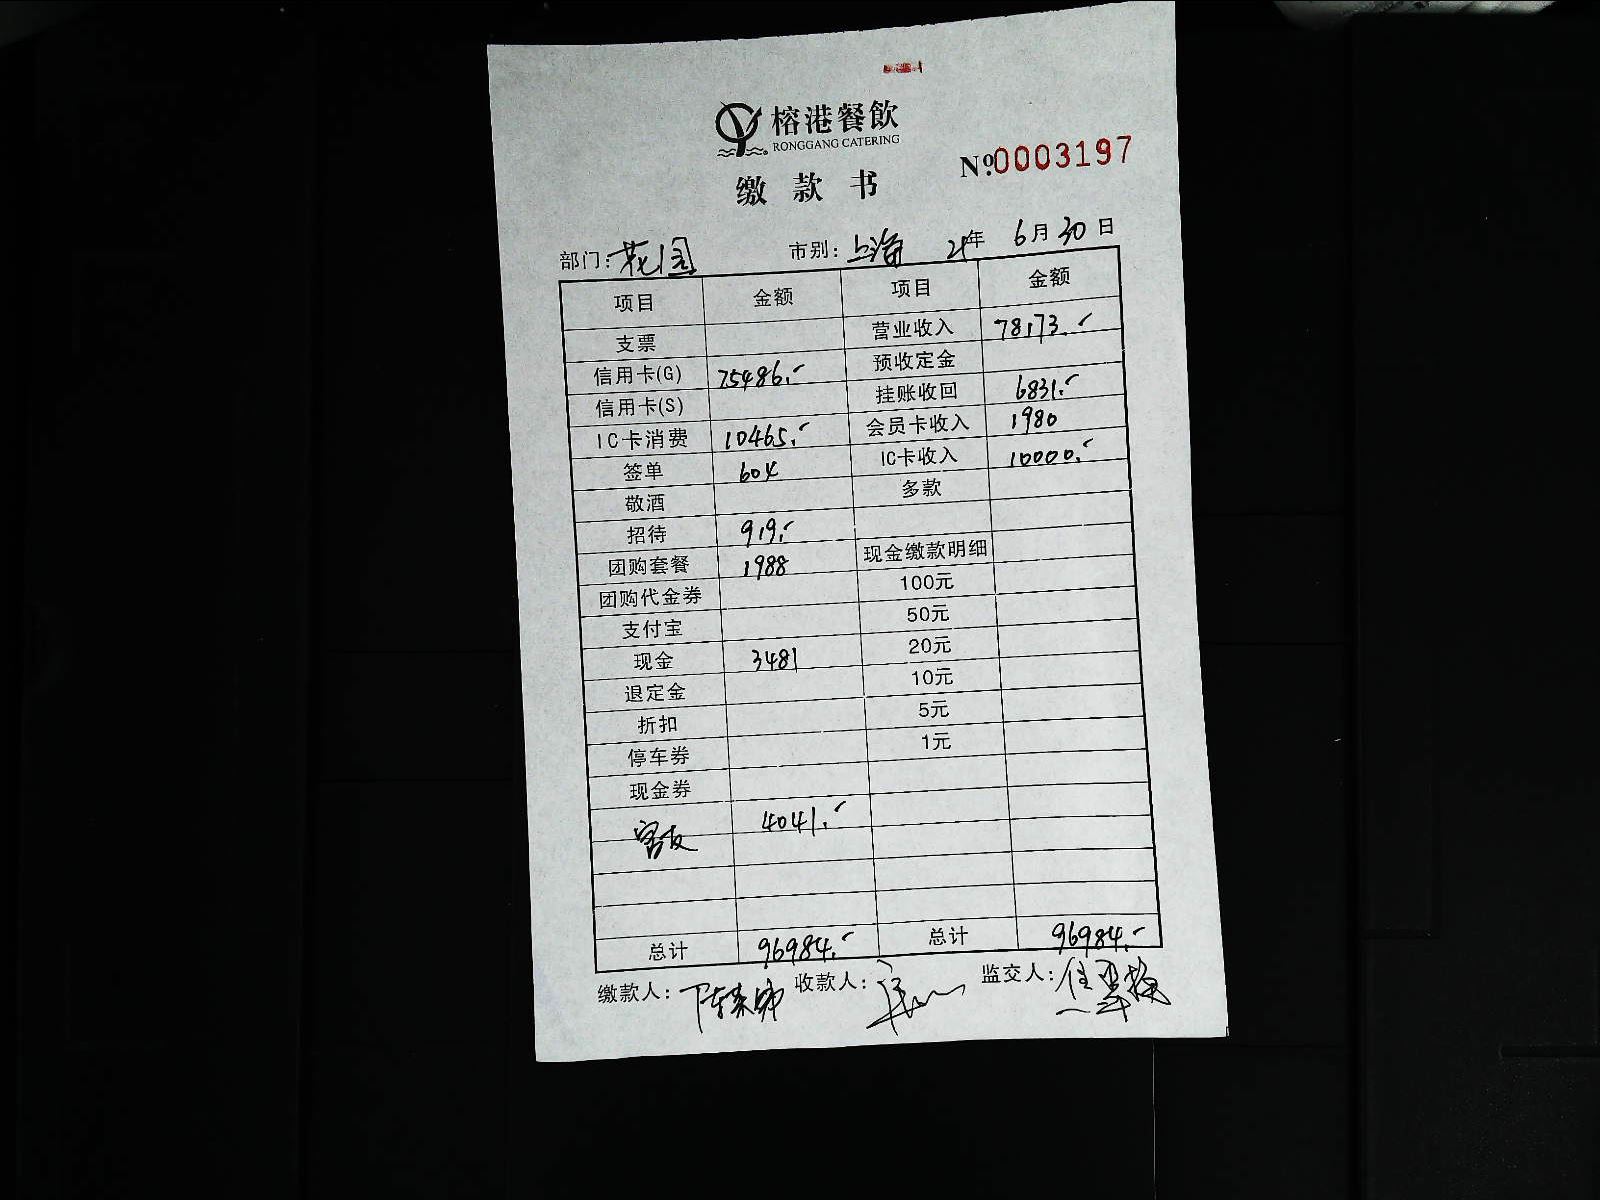 榕港餐飲
RONGGANG CATERING
№0003197
缴款书
部门:花园 市别:上海 21年 6月30日
项目 金额 项目 金额
支票 营业收入 78173.-
信用卡(G) 75486.- 预收定金
信用卡(S) 挂账收回 6831.-
IC卡消费 10465.- 会员卡收入 1980
签单 604 IC卡收入 10000.-
敬酒 多款
招待 919.-
团购套餐 1988 现金缴款明细
团购代金券 100元
支付宝 50元
现金 3481 20元
退定金 10元
折扣 5元
停车券 1元
现金券
4041.-
总计 96984.- 总计 96984.-
缴款人: 收款人: 监交人: